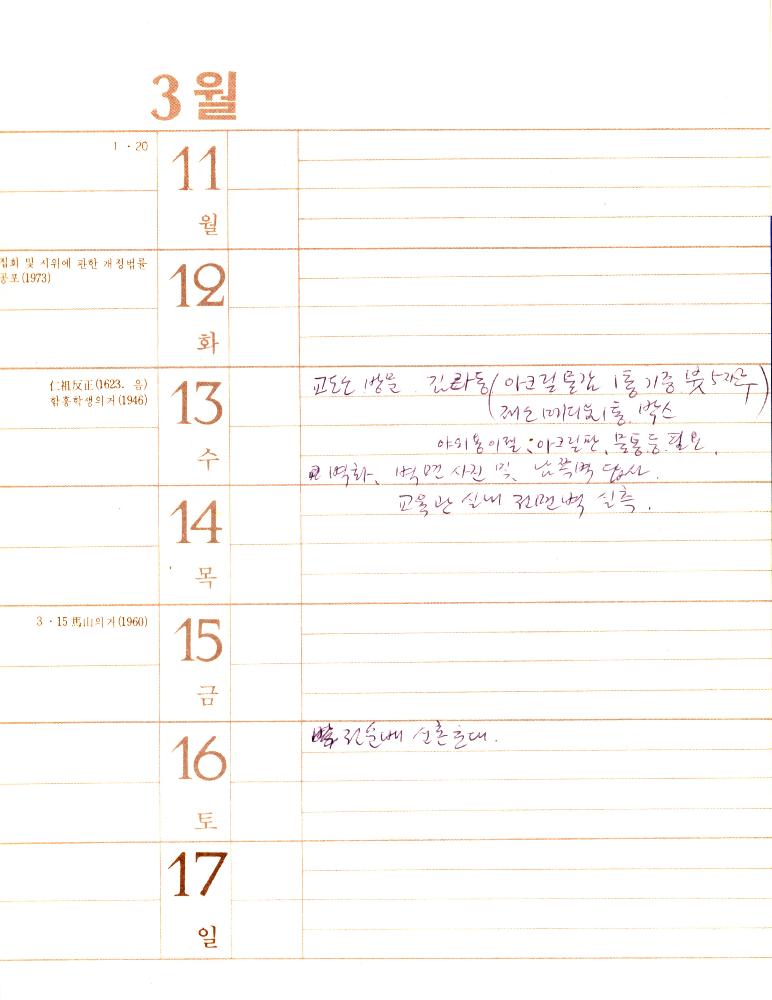 3월
1 · 20
11
월
집회 및 시위에 관한 개정법률
공포(1973)
12
화
仁祖反正(1623. 음)
함흥학생의거(1946)
13
수
교도소 방문. 김라동(아크릴물감 1통 기증 붓 5자루)
젯소 메디움 1통. 박스
야외용 이젤, 아크릴판, 물통등 필요.
벽화, 벽면 사진 및, 남쪽벽 답사.
14
목
교육관 실내 전면벽 실측.
3 · 15 馬山의거(1960)
15
금
16
토
17
일